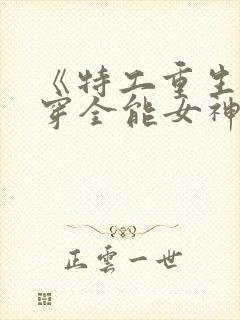 《特工重生
穿全能女神
正雲一世